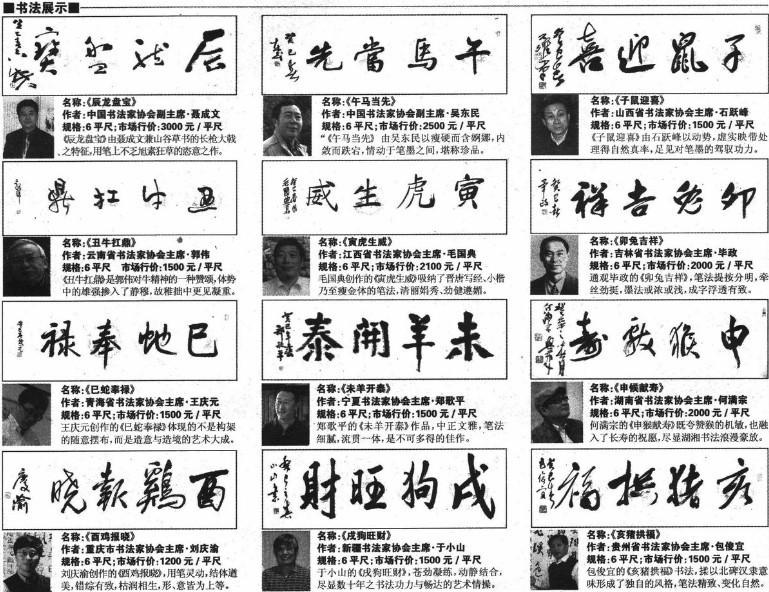 ■书法展示■
辰龙盘寶
名称:《辰龙盘宝》
作者:中国书法家协会副主席·聂成文
规格:6平尺;市场行价:3000元/平尺
《辰龙盘宝》由聂成文兼山谷草书的长枪大戟
之特征,用笔上不乏旭素狂草的恣意之作。
午馬當先
癸巳
名称:《午马当先》
作者:中国书法家协会副主席·吴东民
规格:6平尺;市场行价:2500元/平尺
“《午马当先》由吴东民以瘦硬而含婀娜,内
敛而跌宕,情动于笔墨之间,堪称珍品。
子鼠迎喜
名称:《子鼠迎喜》
作者:山西省书法家协会主席·石跃峰
规格:6平尺;市场行价:1500元/平尺
《子鼠迎喜》由石跃峰以动势,虚实映带处
理得自然真率,足见对笔墨的驾驭功力。
丑牛扛鼎
名称:《丑牛扛鼎》
作者:云南省书法家协会·郭伟
规格:6平尺 市场行价:1500元/平尺
《丑牛扛鼎》是郭伟对牛精神的一种赞颂,体势
中的雄强掺入了静穆,故稚拙中更见凝重。
寅虎生威
名称:《寅虎生威》
作者:江西省书法家协会主席·毛国典
规格:6平尺;市场行价:2100元/平尺
毛国典创作的《寅虎生威》吸纳了晋唐写经、小楷
乃至瘦金体的笔法,清丽娟秀、劲健遒媚。
卯兔吉祥
名称:《卯兔吉祥》
作者:吉林省书法家协会主席·毕政
规格:6平尺;市场行价:2000元/平尺
通观毕政的《卯兔吉祥》,笔法提按分明,牵
丝劲挺,墨法或浓或浅,成字浮透有致。
巳虵奉禄
名称:《巳蛇奉禄》
作者:青海省书法家协会主席·王庆元
规格:6平尺;市场行价:1500元/平尺
王庆元创作的《巳蛇奉禄》体现的不是构架
的随意摆布,而是造意与造境的艺术大成。
未羊開泰
名称:《未羊开泰》
作者:宁夏书法家协会主席·郑歌平
规格:6平尺;市场行价:1500元/平尺
郑歌平的《未羊开泰》作品,中正文雅,笔法
细腻,流贯一体,是不可多得的佳作。
申猴献寿
名称:《申候献寿》
作者:湖南省书法家协会主席·何满宗
规格:6平尺;市场行价:2000元/平尺
何满宗的《申猴献寿》既夸赞猴的机敏,也融
入了长寿的祝愿,尽显湖湘书法浪漫豪放。
酉鷄報晓
慶渝
名称:《酉鸡报晓》
作者:重庆市书法家协会主席·刘庆渝
规格:6平尺;市场行价:1200元/平尺
刘庆渝创作的《酉鸡报晓》,用笔灵动,结体遒
美,错综有致,枯润相生,形、意皆为上等。
戌狗旺財
名称:《戌狗旺财》
作者:新疆书法家协会主席·于小山
规格:6平尺;市场行价:1500元/平尺
于小山的《戌狗旺财》,苍劲凝练,动静结合,
尽显数十年之书法功力与畅达的艺术情操。
亥猪拱福
名称:《亥猪拱福》
作者:贵州省书法家协会主席·包俊宜
规格:6平尺;市场行价:1500元/平尺
包俊宜的《亥猪拱福》书法,揉以北碑汉隶意
味形成了独自的风格,笔法精致、变化自然。